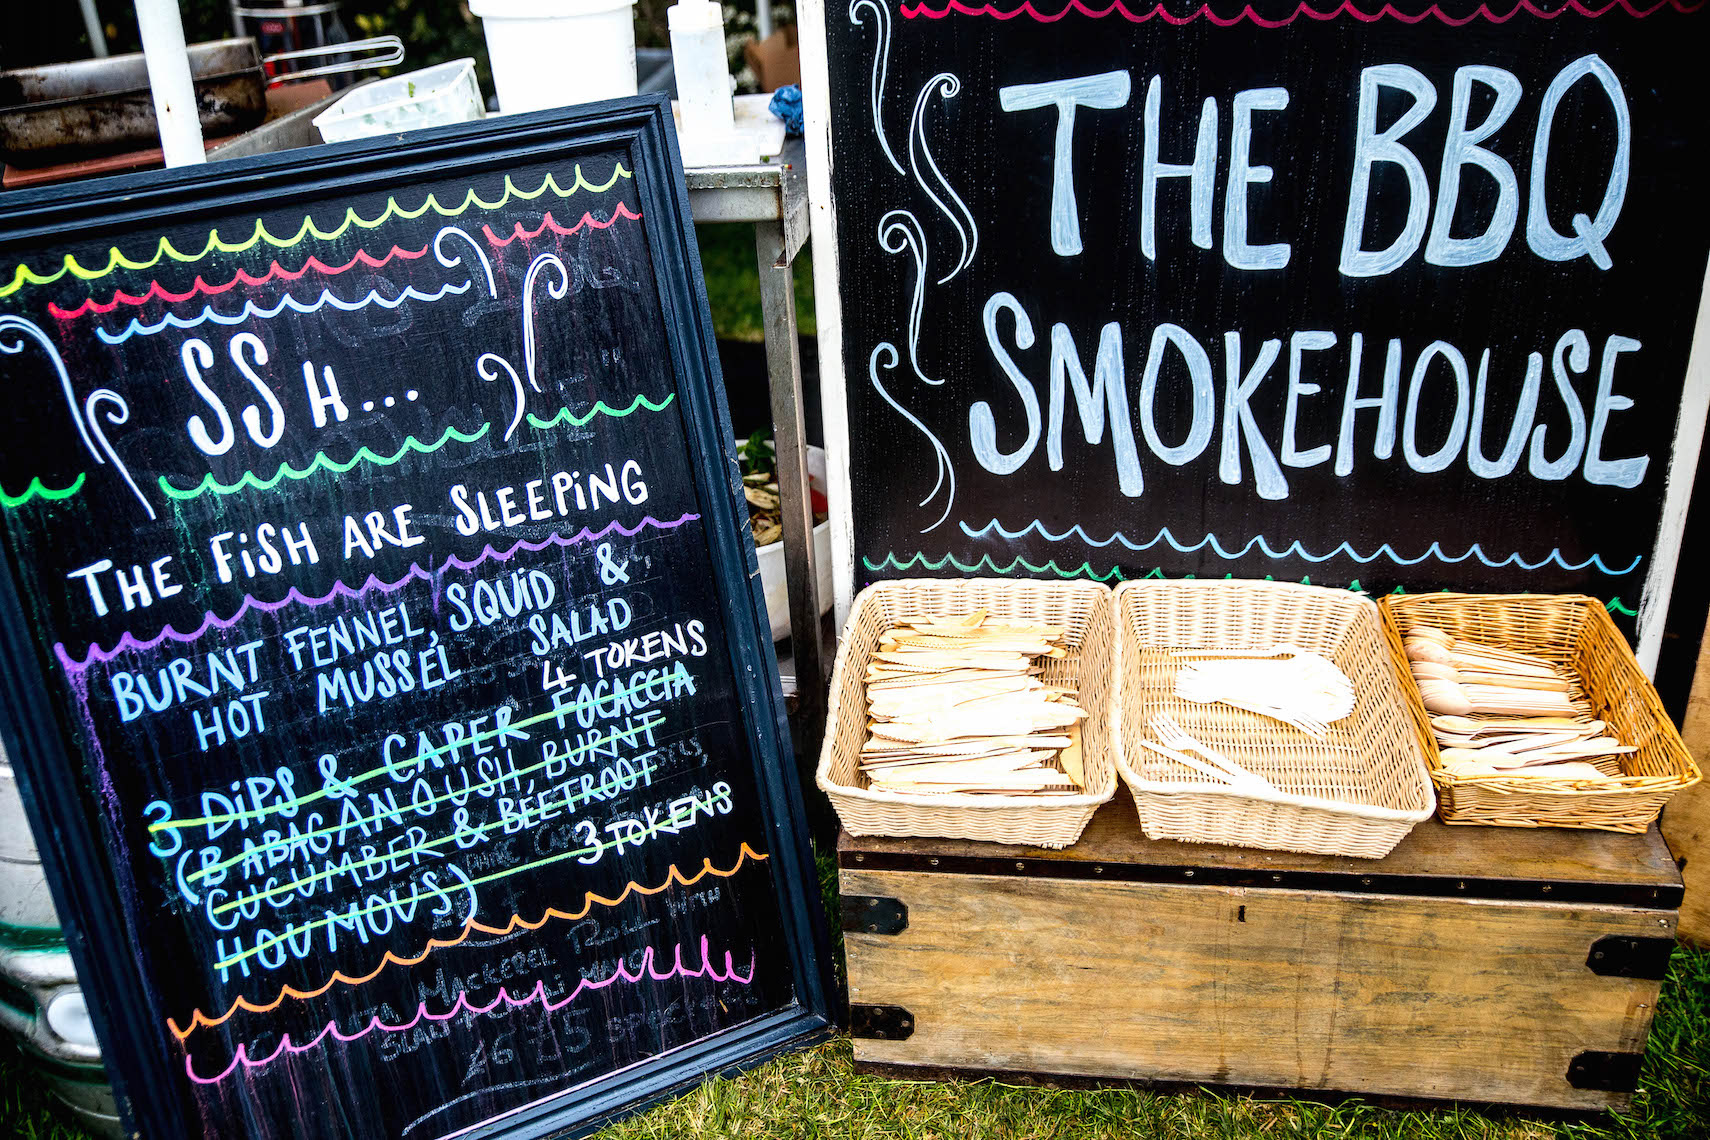 SSH...
THE FISH ARE SLEEPING
BURNT FENNEL, SQUID &
HOT MUSSEL SALAD
4 TOKENS
3 DIPS & CAPER FOCACCIA
(BABAGANOUSH, BURNT
CUCUMBER & BEETROOT
HOUMOUS) 3 TOKENS
MACKEREL
£6 £5
THE BBQ
SMOKEHOUSE